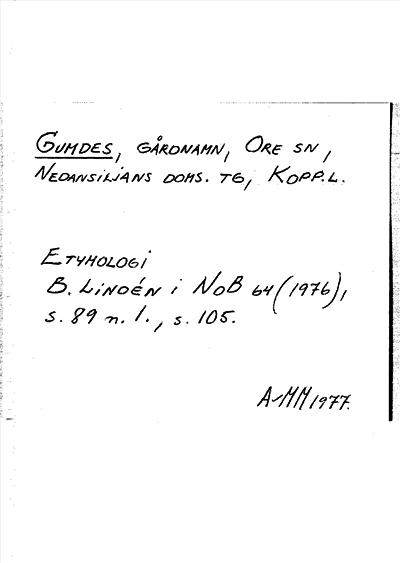 GUMDES, GÅRDNAMN, ORE SN,
NEDANSILJANS DOMS. TG, KOPP.L.
ETYMOLOGI
B. LINDÉN i NoB 64 (1976),
s. 89 n. 1., s. 105.
A-MM 1977.